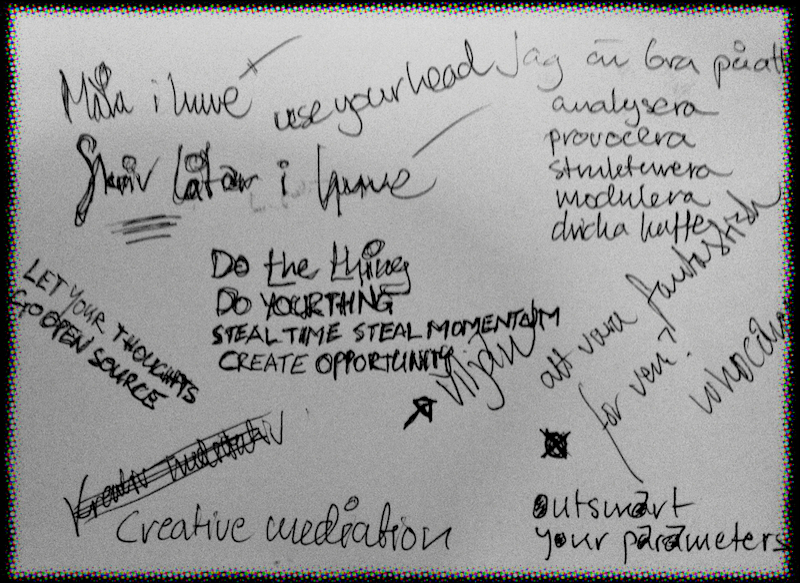 Måla i huvé
use your head
Jag är bra på att
analysera
provocera
strukturera
modulera
dricka kaffe
Skriv låtar i huvé
Do the thing
DO YOUR THING
STEAL TIME STEAL MOMENTUM
CREATE OPPORTUNITY
LET YOUR THOUGHTS
GO OPEN SOURCE
att vara fantastisk
för vem?
who can
Kreativ meditativ
Creative mediation
outsmart
your parameters